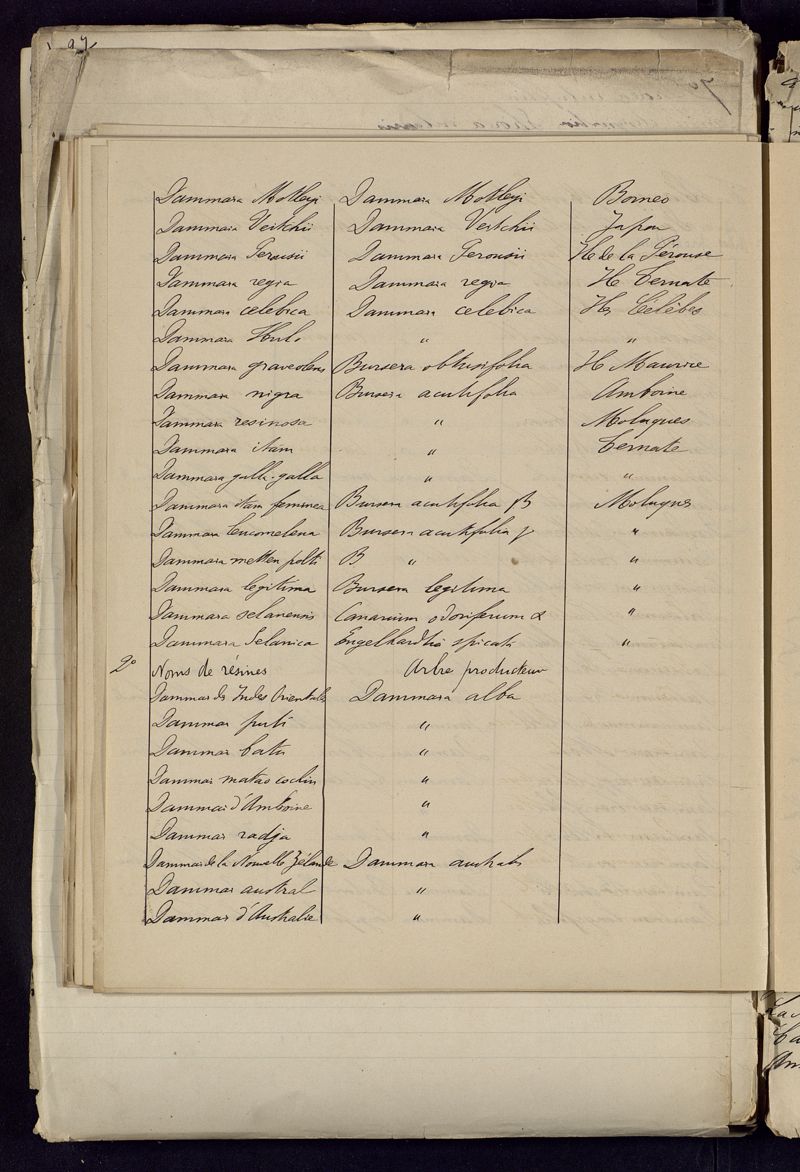 97
Dammara Motleyi Dammara Motleyi Borneo
Dammara Veitchii Dammara Veitchii Japon
Dammara Perousii Dammara Perousii Ile de la Pérouse
Dammara regia Dammara regia Ile Ternate
Dammara celebica Dammara celebica Iles Célèbes
Dammara " "
Dammara graveolens Bursera obtusifolia Ile Maurice
Dammara nigra Bursera acutifolia Amboine
Dammara resinosa " Moluques
Dammara itam " Ternate
Dammara galla-galla " "
Dammara itam feminea Bursera acutifolia β Moluques
Dammara leucomelena Bursera acutifolia γ "
Dammara metten B " "
Dammara legitima Bursera legitima "
Dammara selanensis Canarium odoriferum α "
Dammara Selanica Engelhardtia spicata "
2° Noms de résines Arbre producteur
Dammar des Indes Orientales Dammara alba
Dammar puti "
Dammar batu "
Dammar matao cochin "
Dammar d'Amboine "
Dammar radja "
Dammar de la Nouvelle Zélande Dammara australis
Dammar austral "
Dammar d'Australie "